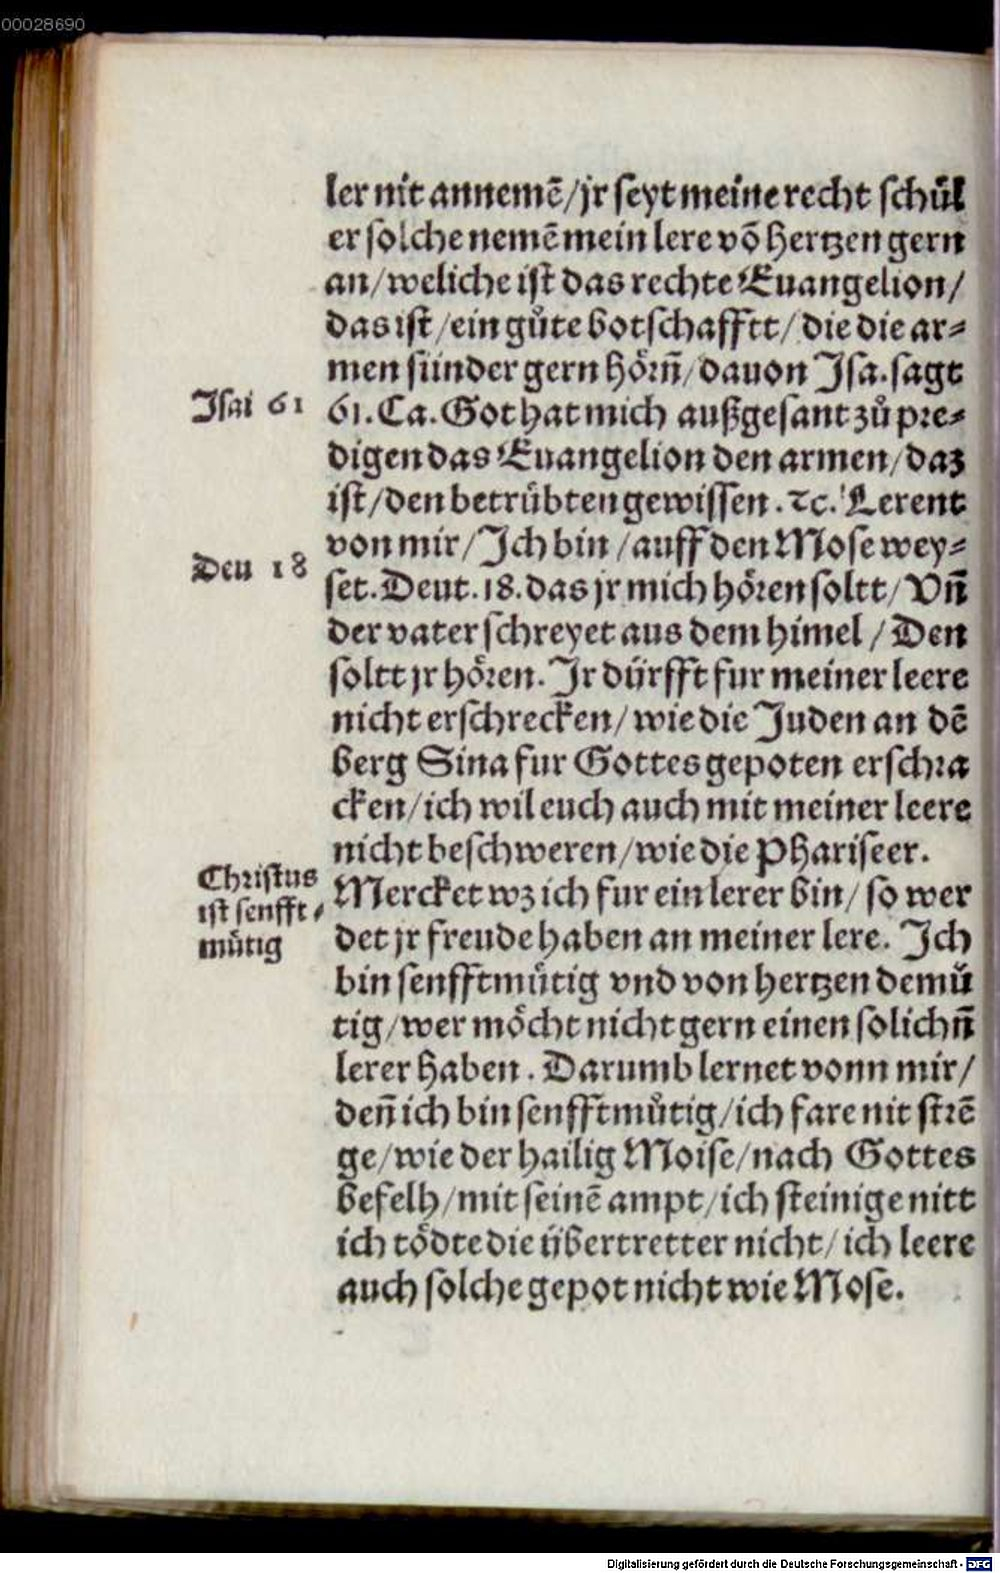 00028690
ler nit annemē/jr seyt meine recht schül
er solche nemē mein lere vō hertzen gern
an/weliche ist das rechte Euangelion/
das ist/ein gůte botschafftt/die die ar⸗
men sünder gern hörn̄/dauon Isa. sagt
Isai 61
61. Ca. Got hat mich außgesant zů pre⸗
digen das Euangelion den armen/daz
ist/den betrübten gewissen. ⁊c. Lerent
von mir/Ich bin/auff den Mose wey⸗
Deu 18
set. Deut. 18. das jr mich hören soltt/Vn̄
der vater schreyet aus dem himel/Den
soltt jr hören. Ir dürfft fur meiner leere
nicht erschrecken/wie die Juden an dē
berg Sina fur Gottes gepoten erschra
cken/ich wil euch auch mit meiner leere
nicht beschweren/wie die Phariseer.
Christus
ist senfft⸗
mütig
Mercket wz ich fur ein lerer bin/so wer
det jr freude haben an meiner lere. Ich
bin senfftmütig vnd von hertzen demů
tig/wer möcht nicht gern einen solichn̄
lerer haben. Darumb lernet vonn mir/
den̄ ich bin senfftmůtig/ich fare nit strē
ge/wie der hailig Moise/nach Gottes
befelh/mit seinē ampt/ich steinige nitt
ich tödte die übertretter nicht/ich leere
auch solche gepot nicht wie Mose.
Digitalisierung gefördert durch die Deutsche Forschungsgemeinschaft - DFG